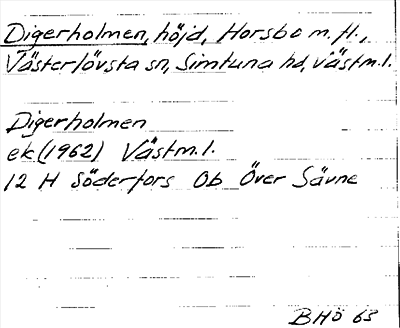 Digerholmen, höjd, Horsbo m.fl.,
Västerlövsta sn, Simtuna hd, västm.l.
Digerholmen
ek (1962) Västm.l.
12 H Söderfors Ob Över Sävne
BHÖ 63